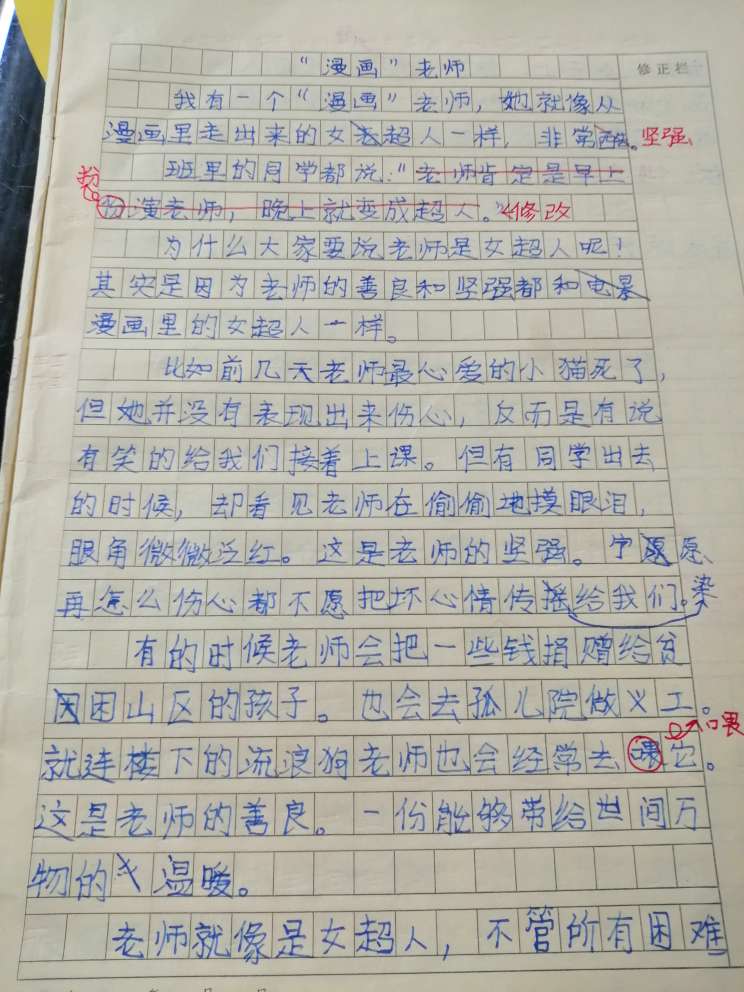 “漫画”老师
修正栏
我有一个“漫画”老师，她就像从
漫画里走出来的女超人一样，非常酷。坚强
班里的同学都说：“老师肯定是早上
扮
扮演老师，晚上就变成超人。”修改
为什么大家要说老师是女超人呢！
其实是因为老师的善良和坚强都和电景
漫画里的女超人一样。
比如前几天老师最心爱的小猫死了，
但她并没有表现出来伤心，反而是有说
有笑的给我们接着上课。但有同学出去
的时候，却看见老师在偷偷地摸眼泪，
眼角微微泛红。这是老师的坚强。宁愿
再怎么伤心都不愿把坏心情传染给我们。
有的时候老师会把一些钱捐赠给贫
困山区的孩子。也会去孤儿院做义工。
喂
就连楼下的流浪狗老师也会经常去它。
这是老师的善良。一份能够带给世间万
物的温暖。
老师就像是女超人，不管所有困难